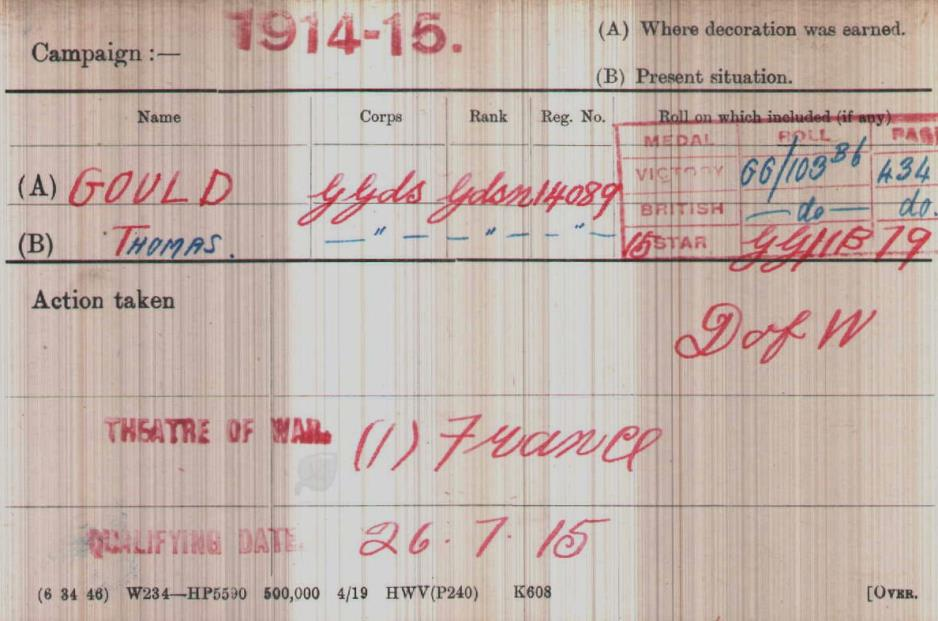 Campaign :— 1914-15.
(A) Where decoration was earned.
(B) Present situation.
Name Corps Rank Reg. No. Roll on which included (if any)
MEDAL ROLL PAGE
(A) GOULD G Gds Gdsn 14089
VICTORY GG/103 B6 434
BRITISH — do — do.
(B) THOMAS. — " — " — " —
15 STAR GG11B 79
Action taken
D of W
THEATRE OF WAR. (1) France
QUALIFYING DATE. 26.7.15
(6 34 46) W234—HP5590 500,000 4/19 HWV(P240) K608 [OVER.